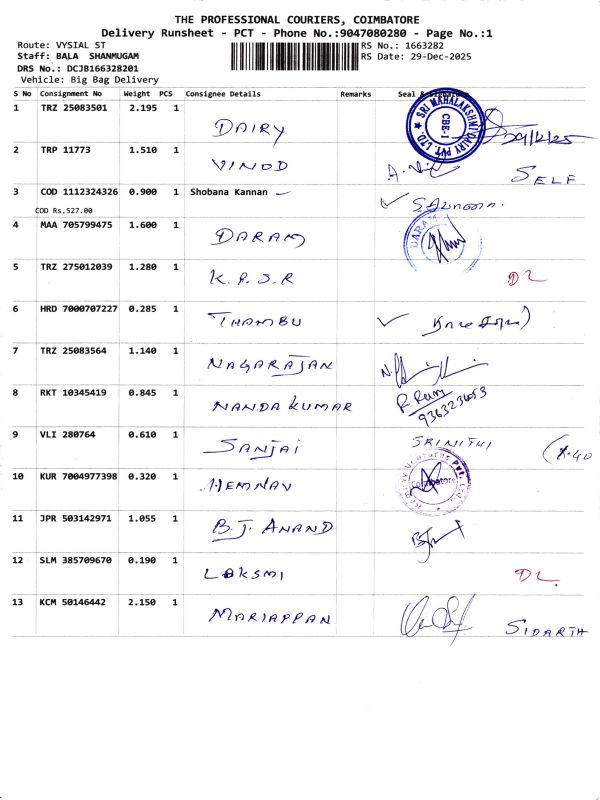 THE PROFESSIONAL COURIERS, COIMBATORE
Delivery Runsheet - PCT - Phone No.:9047080280 - Page No.:1
Route: VYSIAL ST
RS No.: 1663282
Staff: BALA SHANMUGAM
RS Date: 29-Dec-2025
DRS No.: DCJB166328201
Vehicle: Big Bag Delivery
S No Consignment No Weight PCS Consignee Details Remarks Seal &
1 TRZ 25083501 2.195 1 DAIRY
SRI MAHALAKSHMI DAIRY PVT. LTD. CBE-1
2 TRP 11773 1.510 1 VINOD SELF
3 COD 1112324326 0.900 1 Shobana Kannan
COD Rs.527.00
4 MAA 705799475 1.600 1 DARAM
5 TRZ 275012039 1.280 1 K.P.S.R DL
6 HRD 7000707227 0.285 1 THAMBU
7 TRZ 25083564 1.140 1 NAGARAJAN
8 RKT 10345419 0.845 1 NANDAKUMAR
9 VLI 280764 0.610 1 SANJAI SRINITHI
10 KUR 7004977398 0.320 1 Coimbatore
11 JPR 503142971 1.055 1 B.J. ANAND
12 SLM 385709670 0.190 1 LAKSMI DL
13 KCM 50146442 2.150 1 MARIAPPAN SIDARTH